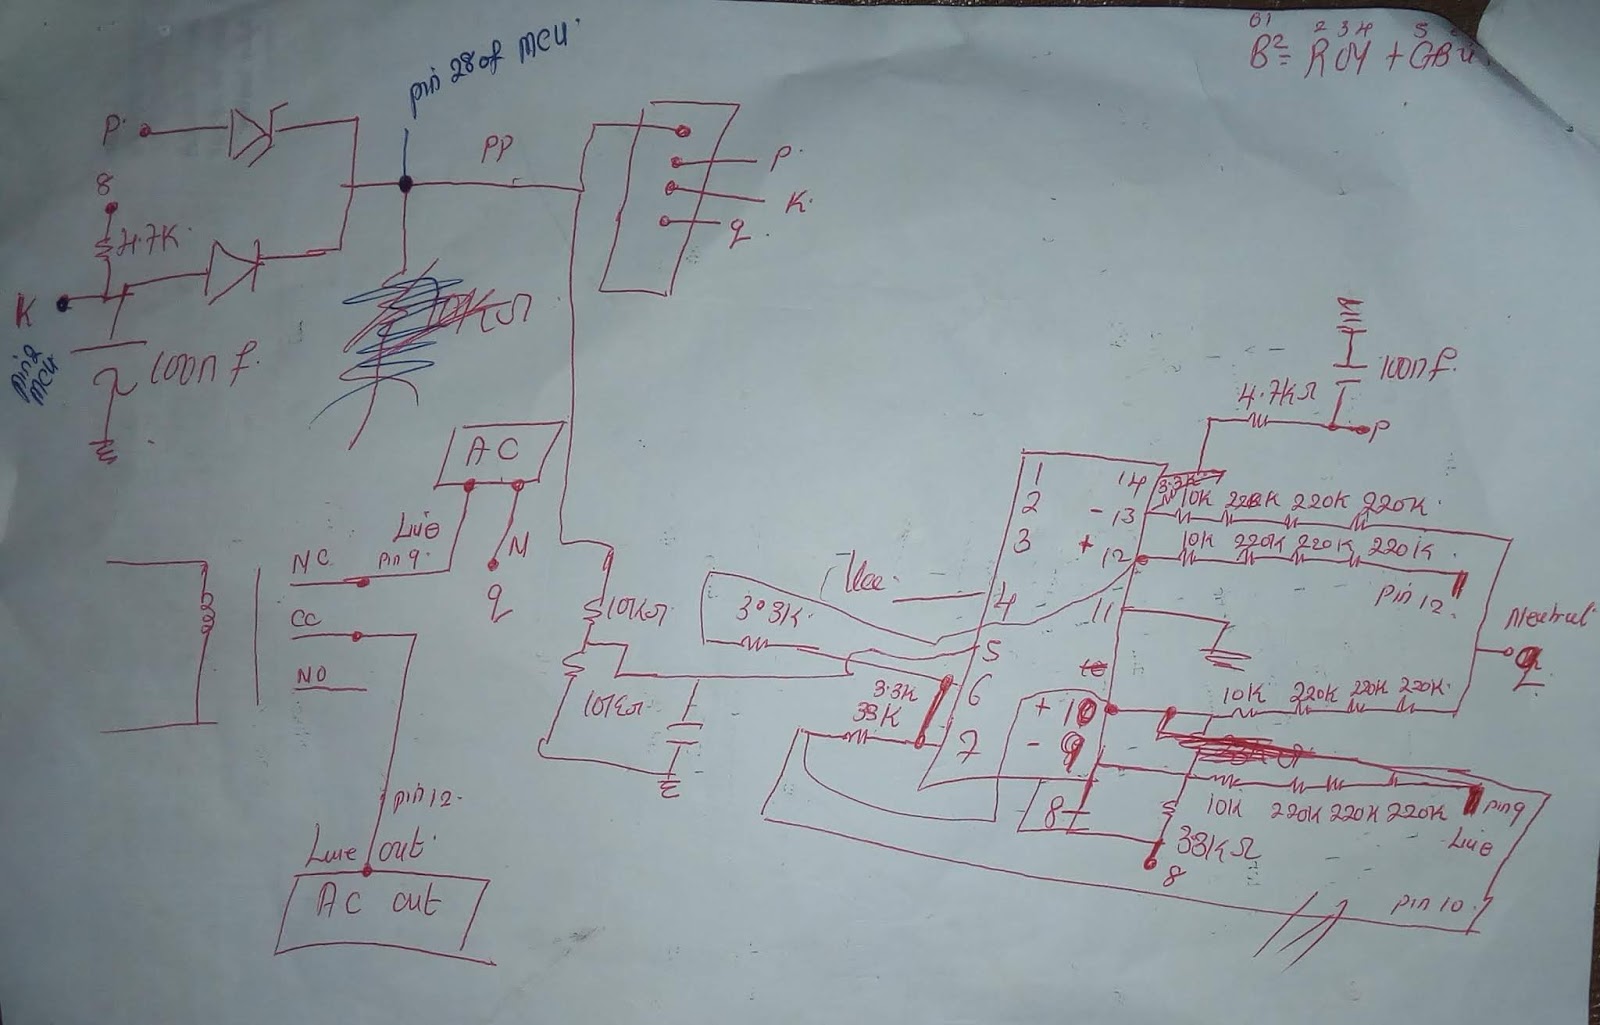 B1 2 3 4 5
B2= R OY + GBU
pin 28 of MCU.
P.
PP
P.
K.
q.
8
4.7K.
K
pin 2
MCU
100nf.
10KΩ
100nf.
4.7KΩ
P
AC
Live
pin 9.
N
q
NC
CC
NO
10KΩ.
10KΩ.
Vcc.
3.3K.
3.3K
33K
1 14
2 - 13
3 + 12
4 11
5 10
6 + 10
7 - 9
8
3.3K
10K 220K 220K 220K.
10K 220K 220K 220K.
pin 12.
Neutral
q
10K 220K 220K 220K.
10K 220K 220K 220K
pin 9
Live
33KΩ
8
pin 10.
pin 12.
Live out
AC out